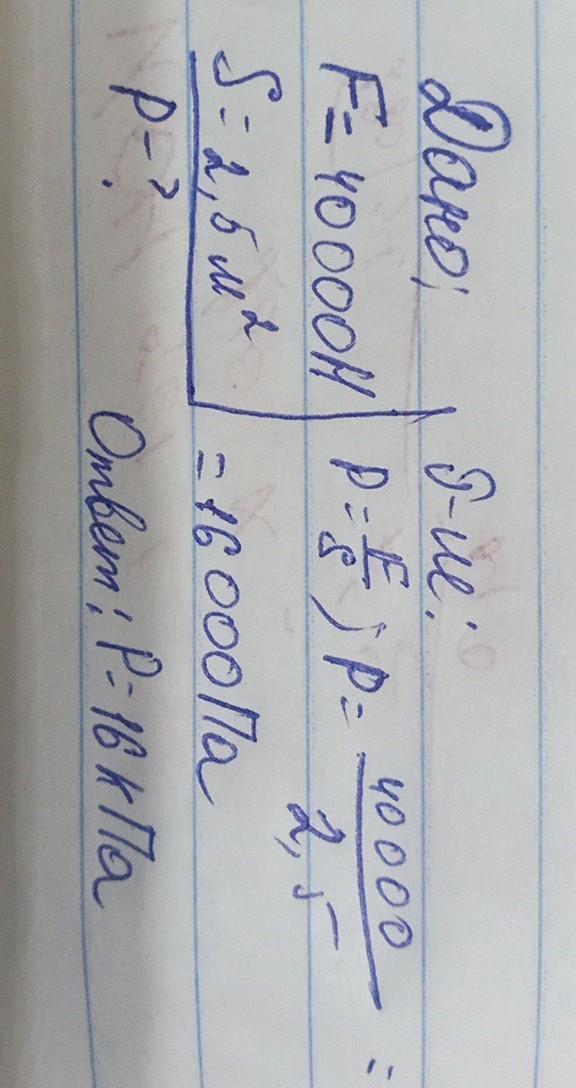 Дано:
F = 40000Н
S = 2,5 м²
P - ?
Р-ш:
P = F/S ; P = 40000/2,5 =
= 16000Па
Ответ: P = 16 кПа